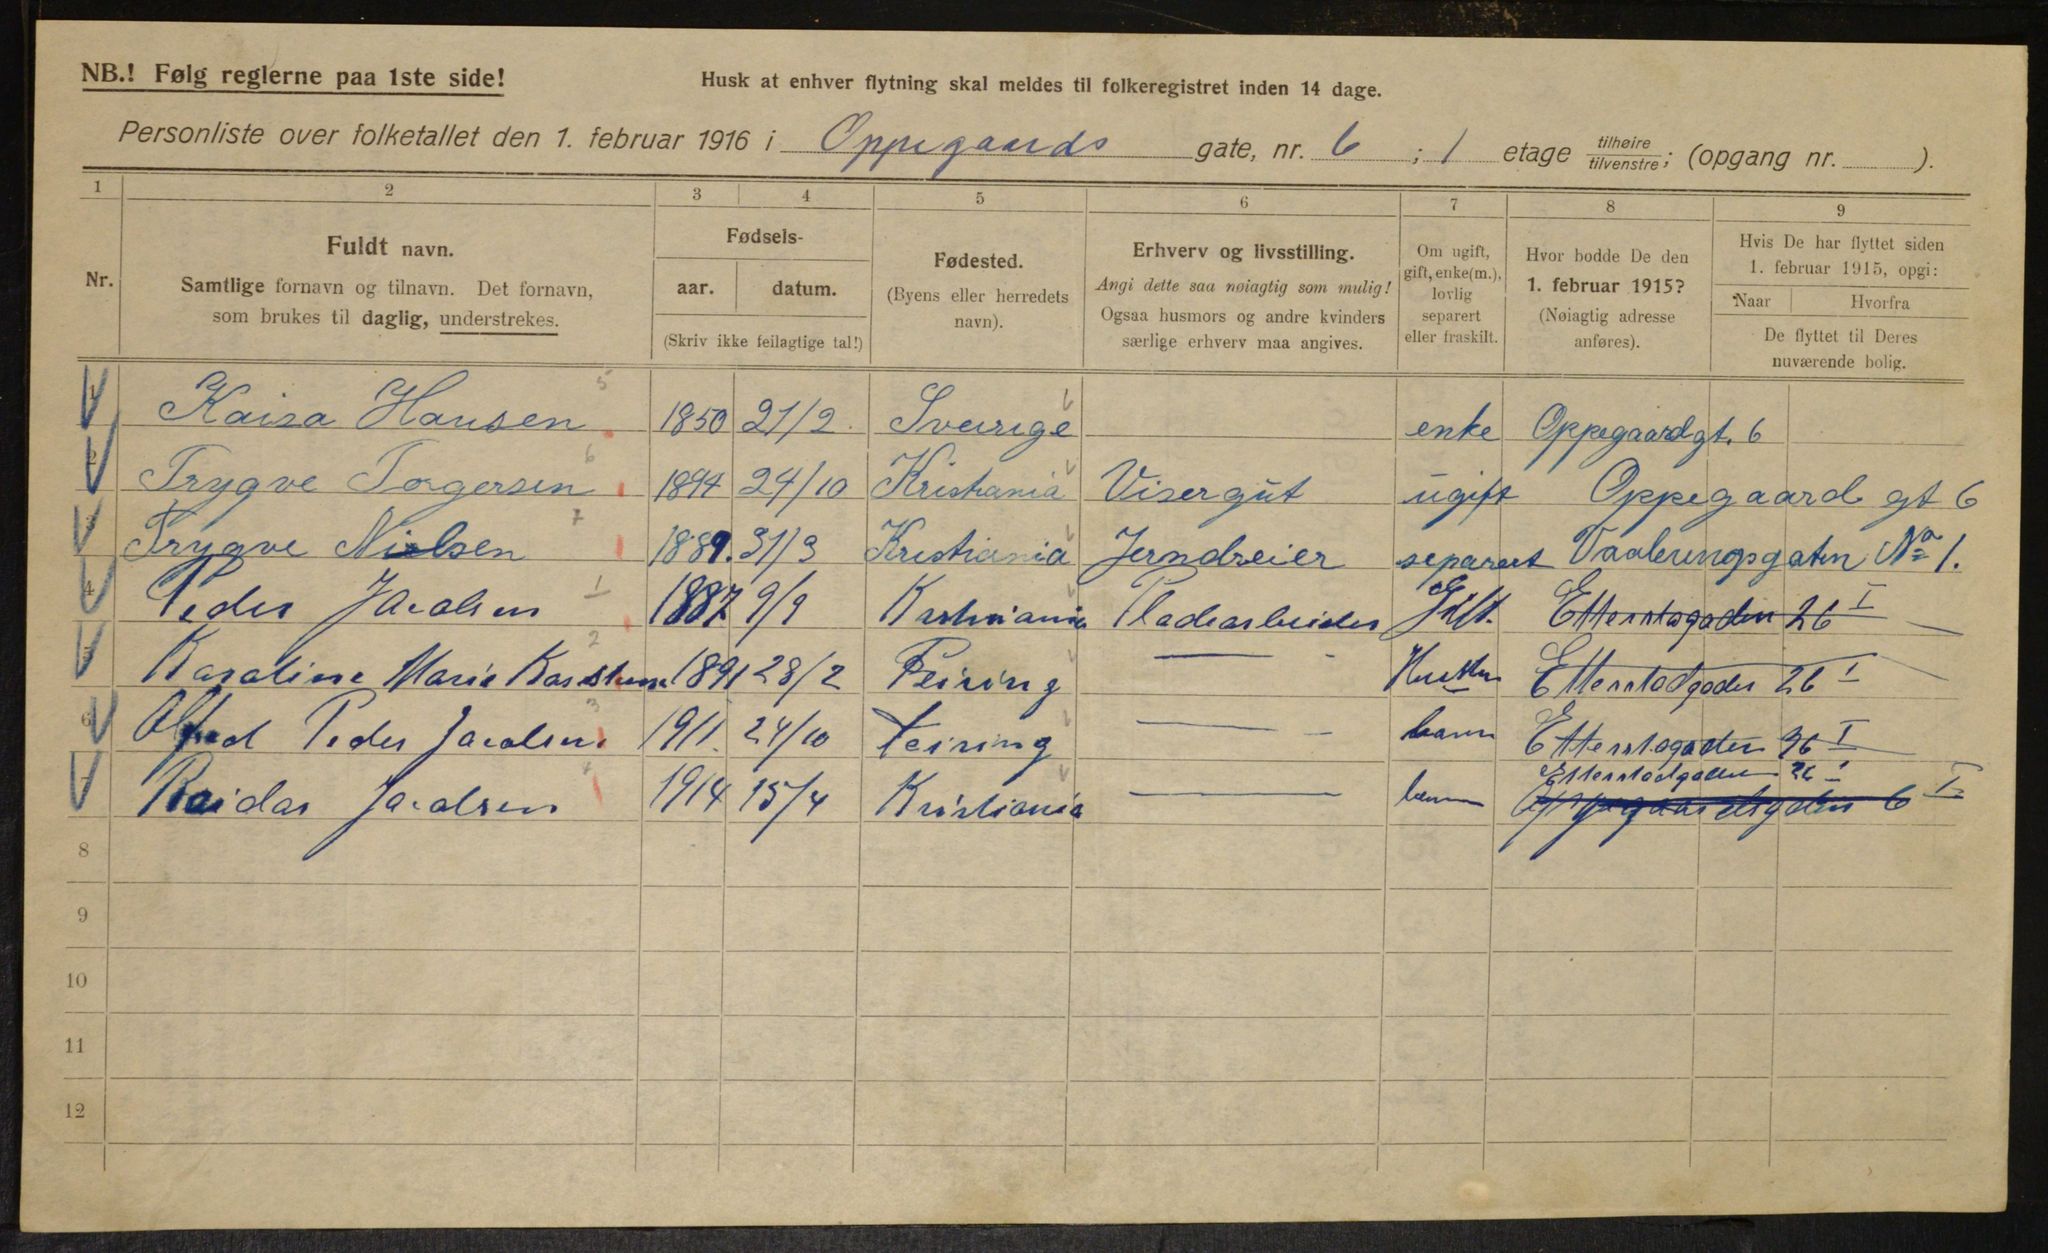 NB.! Følg reglerne paa 1ste side!
Husk at enhver flytning skal meldes til folkeregistret inden 14 dage.
Personliste over folketallet den 1. februar 1916 i Oppegaards gate, nr. 6 ; 1 etage tilhøire/tilvenstre; (opgang nr. ).
1 2 3 4 5 6 7 8 9
Nr.
Fuldt navn.
Samtlige fornavn og tilnavn. Det fornavn,
som brukes til daglig, understrekes.
Fødsels-
aar. datum.
(Skriv ikke feilagtige tal!)
Fødested.
(Byens eller herredets
navn).
Erhverv og livsstilling.
Angi dette saa nøiagtig som mulig!
Ogsaa husmors og andre kvinders
særlige erhverv maa angives.
Om ugift,
gift, enke(m.),
lovlig
separert
eller fraskilt.
Hvor bodde De den
1. februar 1915?
(Nøiagtig adresse
anføres).
Hvis De har flyttet siden
1. februar 1915, opgi:
Naar Hvorfra
De flyttet til Deres
nuværende bolig.
1 Kaisa Hansen 5 1850 21/2 Sverige enke Oppegaardgt. 6
2 Trygve Torgersen 6 1894 24/10 Kristiania Visergut ugift Oppegaard gt 6
3 Trygve Nielsen 7 1889. 31/3 Kristiania Jerndreier separert Vaalerengsgaten No 1.
4 Peder Jacobsen 1 1887 9/9 Kristiania Pladearbeider Gift. Etterstagaden 26 I
5 Karoline Marie 2 1891 28/2 Feiring Hustru Etterstadgaden 26 I
6 Alfred Peder Jacobsen 3 1911. 24/10 Feiring barn Etterstagaden 26 I
7 Reidar Jacobsen 4 1914 15/4 Kristiania barn Etterstadgaden 26 I
Oppegaardsgaden 6 I
8
9
10
11
12